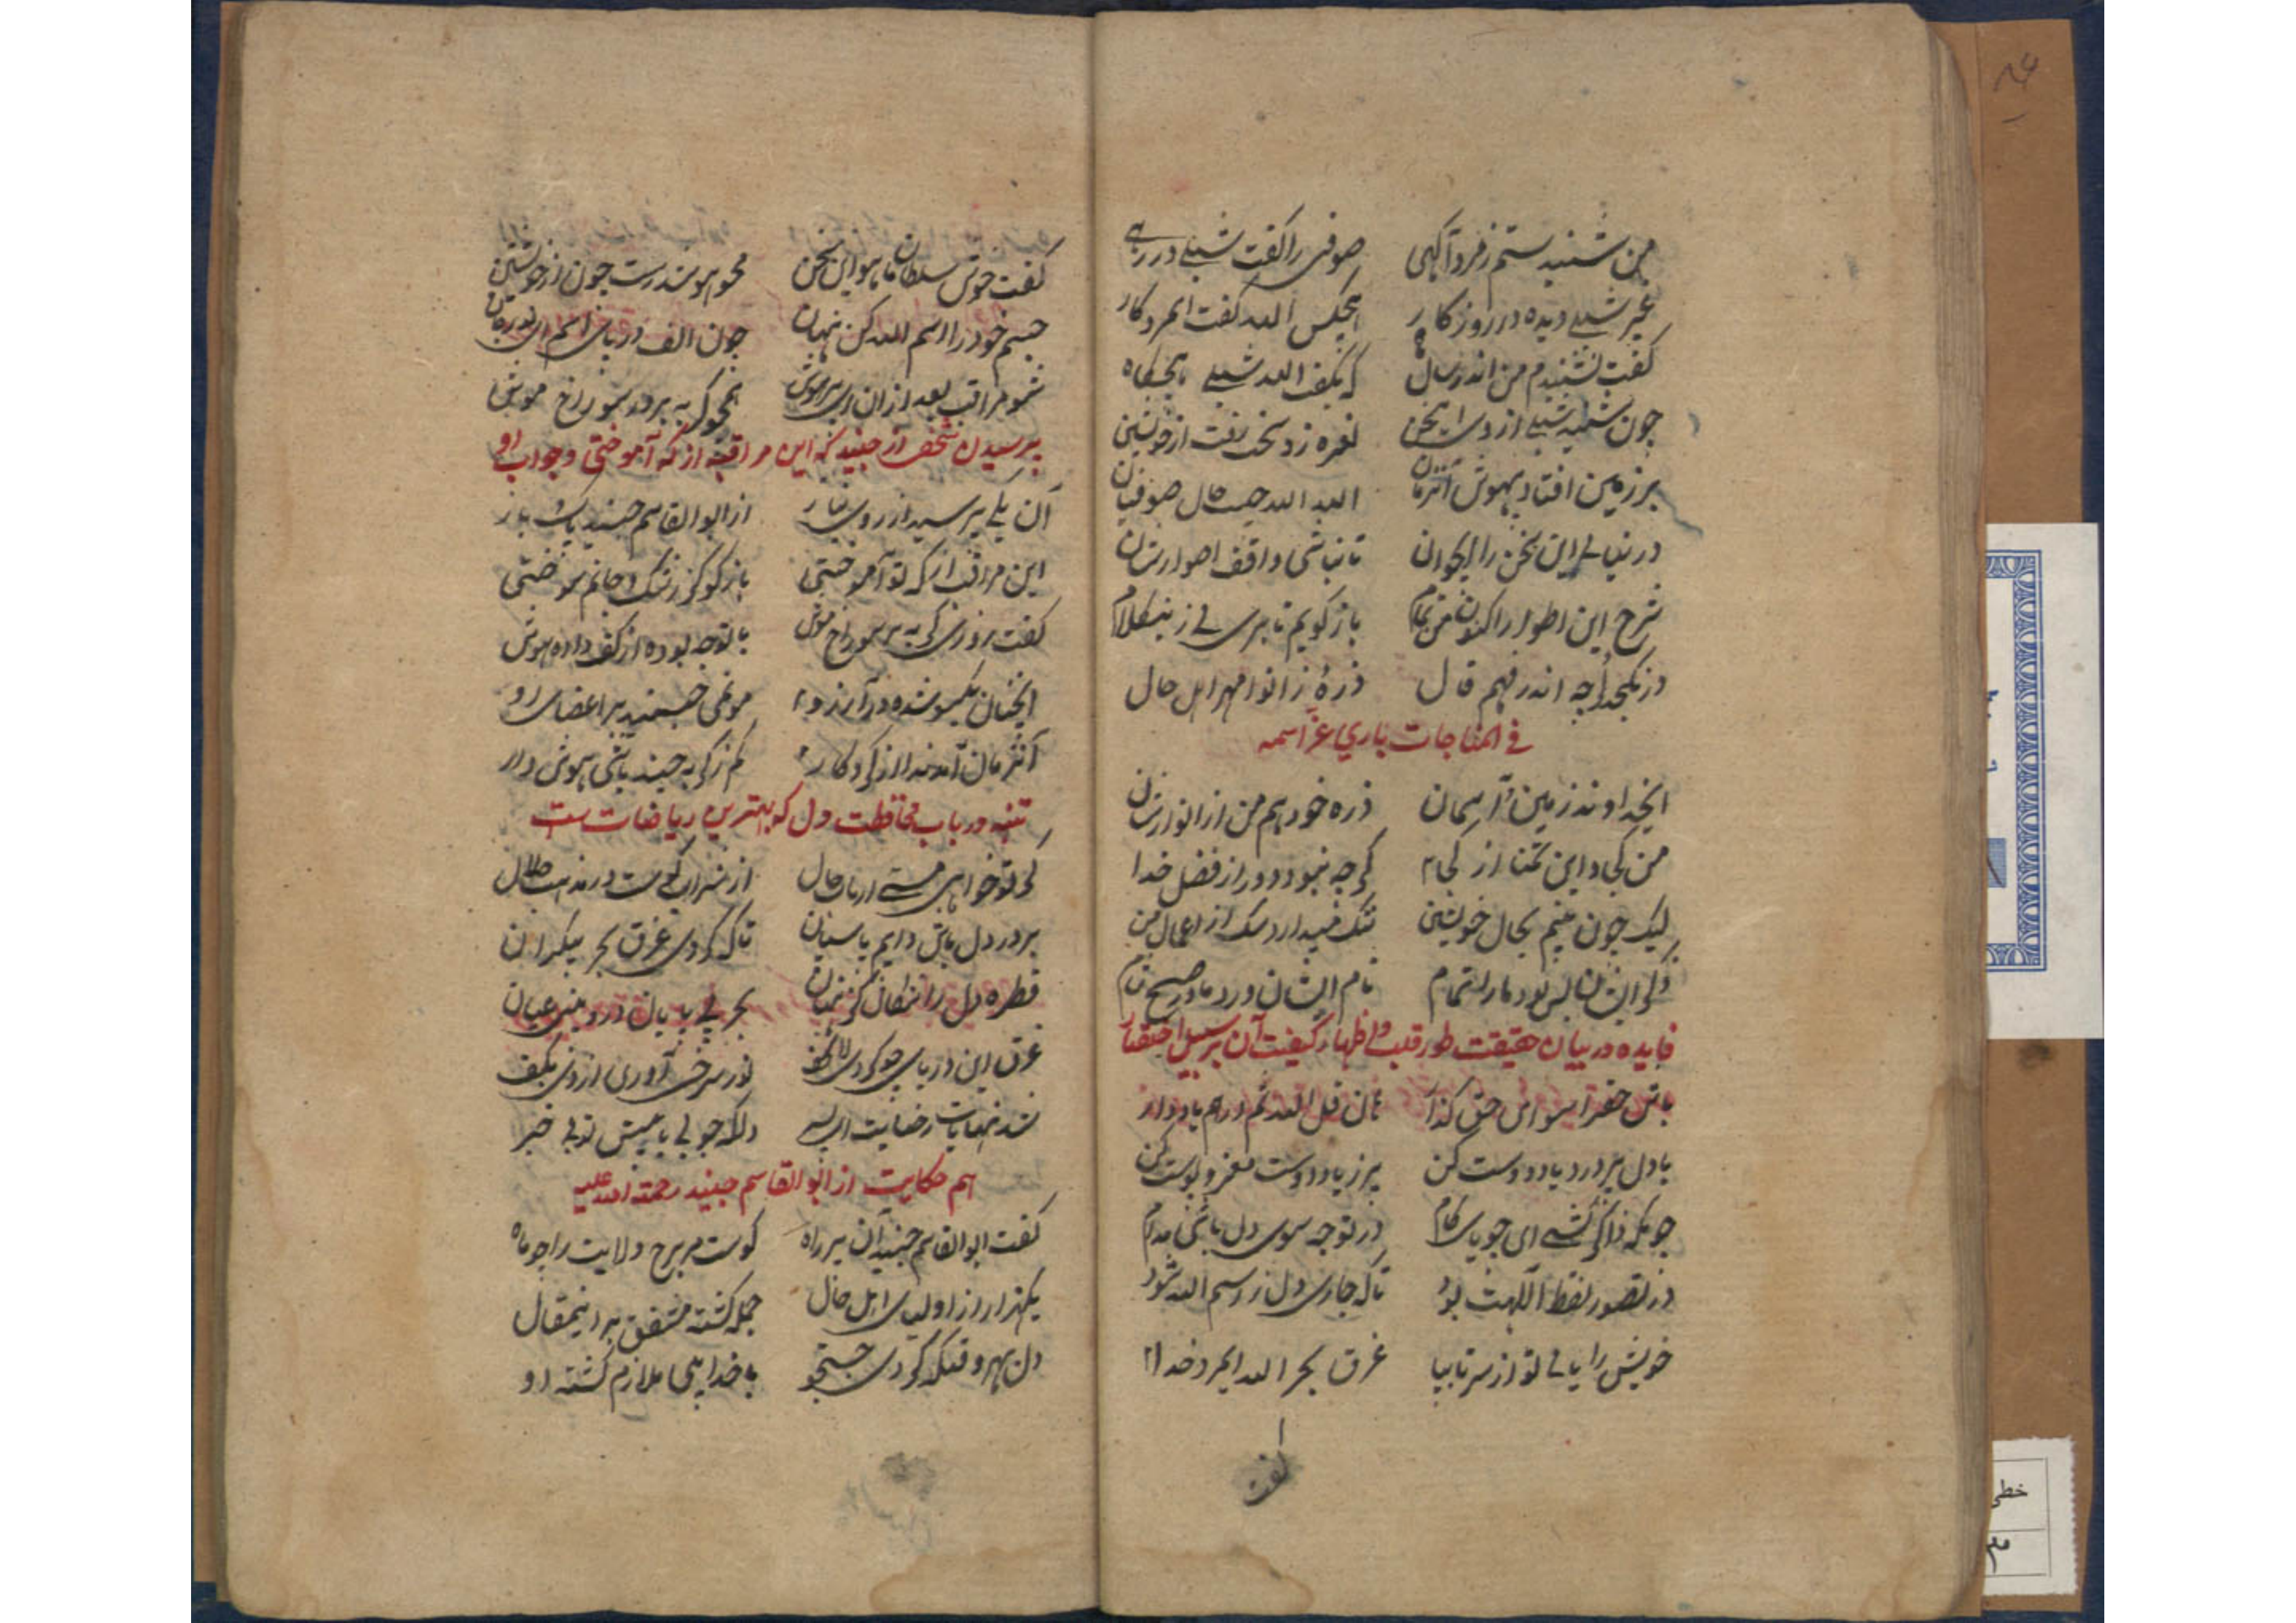 من شنیدستم ز مرد آگهی صوفی را گفت شبلی در رهی
غیر شبلی دیده در روزگار هیچکس الله گفت ایمرد کار
گفت نشنیدم من اندر سال که بگفت الله شبلی هیچگاه
چون شنید شبلی از وی این سخن نعره زد سخت رفت از خویشتن
بر زمین افتاد بیهوش آنزمان الله الله چیست حال صوفیان
در نیابی این سخن را ایجوان تا نباشی واقف اطوارشان
شرح این اطوار را اکنون من تمام باز گویم تا بری پی زین کلام
در نگنجد ارچه اندر فهم قال ذرهٔ ز انوار مهر اهل حال
فی المناجات باری عز اسمه
ایخداوند زمین و آسمان ذره خود هم من از انوارشان
من کجا و این تمنا از کجا گرچه نبود دور از فضل خدا
لیک چون بینم بحال خویشتن ننگ میدارد سگ از اعمال من
ذکر ایشان بس بود ما را تمام نام ایشان ورد ما در صبح و شام
فایده در بیان حقیقت طور قلب و اظهار کیفیت آن بر سبیل اختصار
باش حضرا سوای حق گذار قل الله ثم ذرهم یاد دار
با دل پر درد یاد دوست کن پر ز یاد دوست مغز و پوست کن
چونکه ذاکر گشتی ای جویای کام در توجه سوی دل باش مدام
در تصور لفظ اللهت بود تا که جاری دل ز اسم الله شود
خویش را یابی تو از سر تا بپا غرق بحر الله ایمرد خدا
گفت
گفت خوش سلطان باهو این سخن محو هو شدست چون از خویشتن
جسم خود را در اسم الله کن نهان چون الف در بای بسم
شو مراقب بعد از ان ای همچو گربه بر در سوراخ موش
پرسیدن شخصی از جنید که این مراقبه از که آموختی و جواب او
آن یکی پرسید از روی نیاز از ابوالقاسم جنید پاکباز
این مراقبه از که تو آموختی باز گو کز رشک جانم سوختی
گفت روزی گربه بر سوراخ موش با توجه بوده از کف داده هوش
آنچنان یکسو شده در آرزو موی می جنبید بر اعضای او
آنزمان آمد ندا از کردگار کم ز گربه چند باشی هوش دار
تنبه در باب محافظت دل که بهترین ریاضات ست
گر تو خواهی مستی ارباب حال از شراب در مذهب حلال
بر در دل باش دایم پاسبان تا که گردی غرق بحر بیکران
قطره دل را شکافی گر نهان بحر بی پایان درو بینی عیان
غرق این دریای چو گردی آوری از وی بکف
شد نهایات ای پسر دلکه جویی با تو بی خبر
هم حکایت از ابوالقاسم جنید رحمة الله علیه
گفت ابوالقاسم جنید آن پیر راه کوست مر برج ولایت را چو ماه
یکهزار از اولیای اهل حال جمله گشته متفق بر اینمقال
دل بهر وقتیکه کردی جستجو با خدا ملازم گشته او
خطی